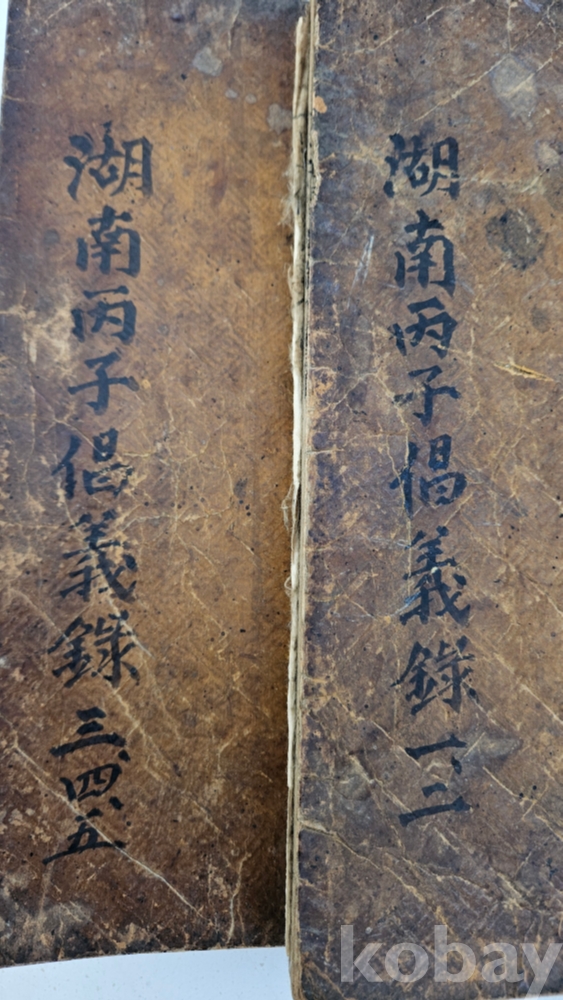 湖南丙子倡義錄 一、二
湖南丙子倡義錄 三、四、五
kobay